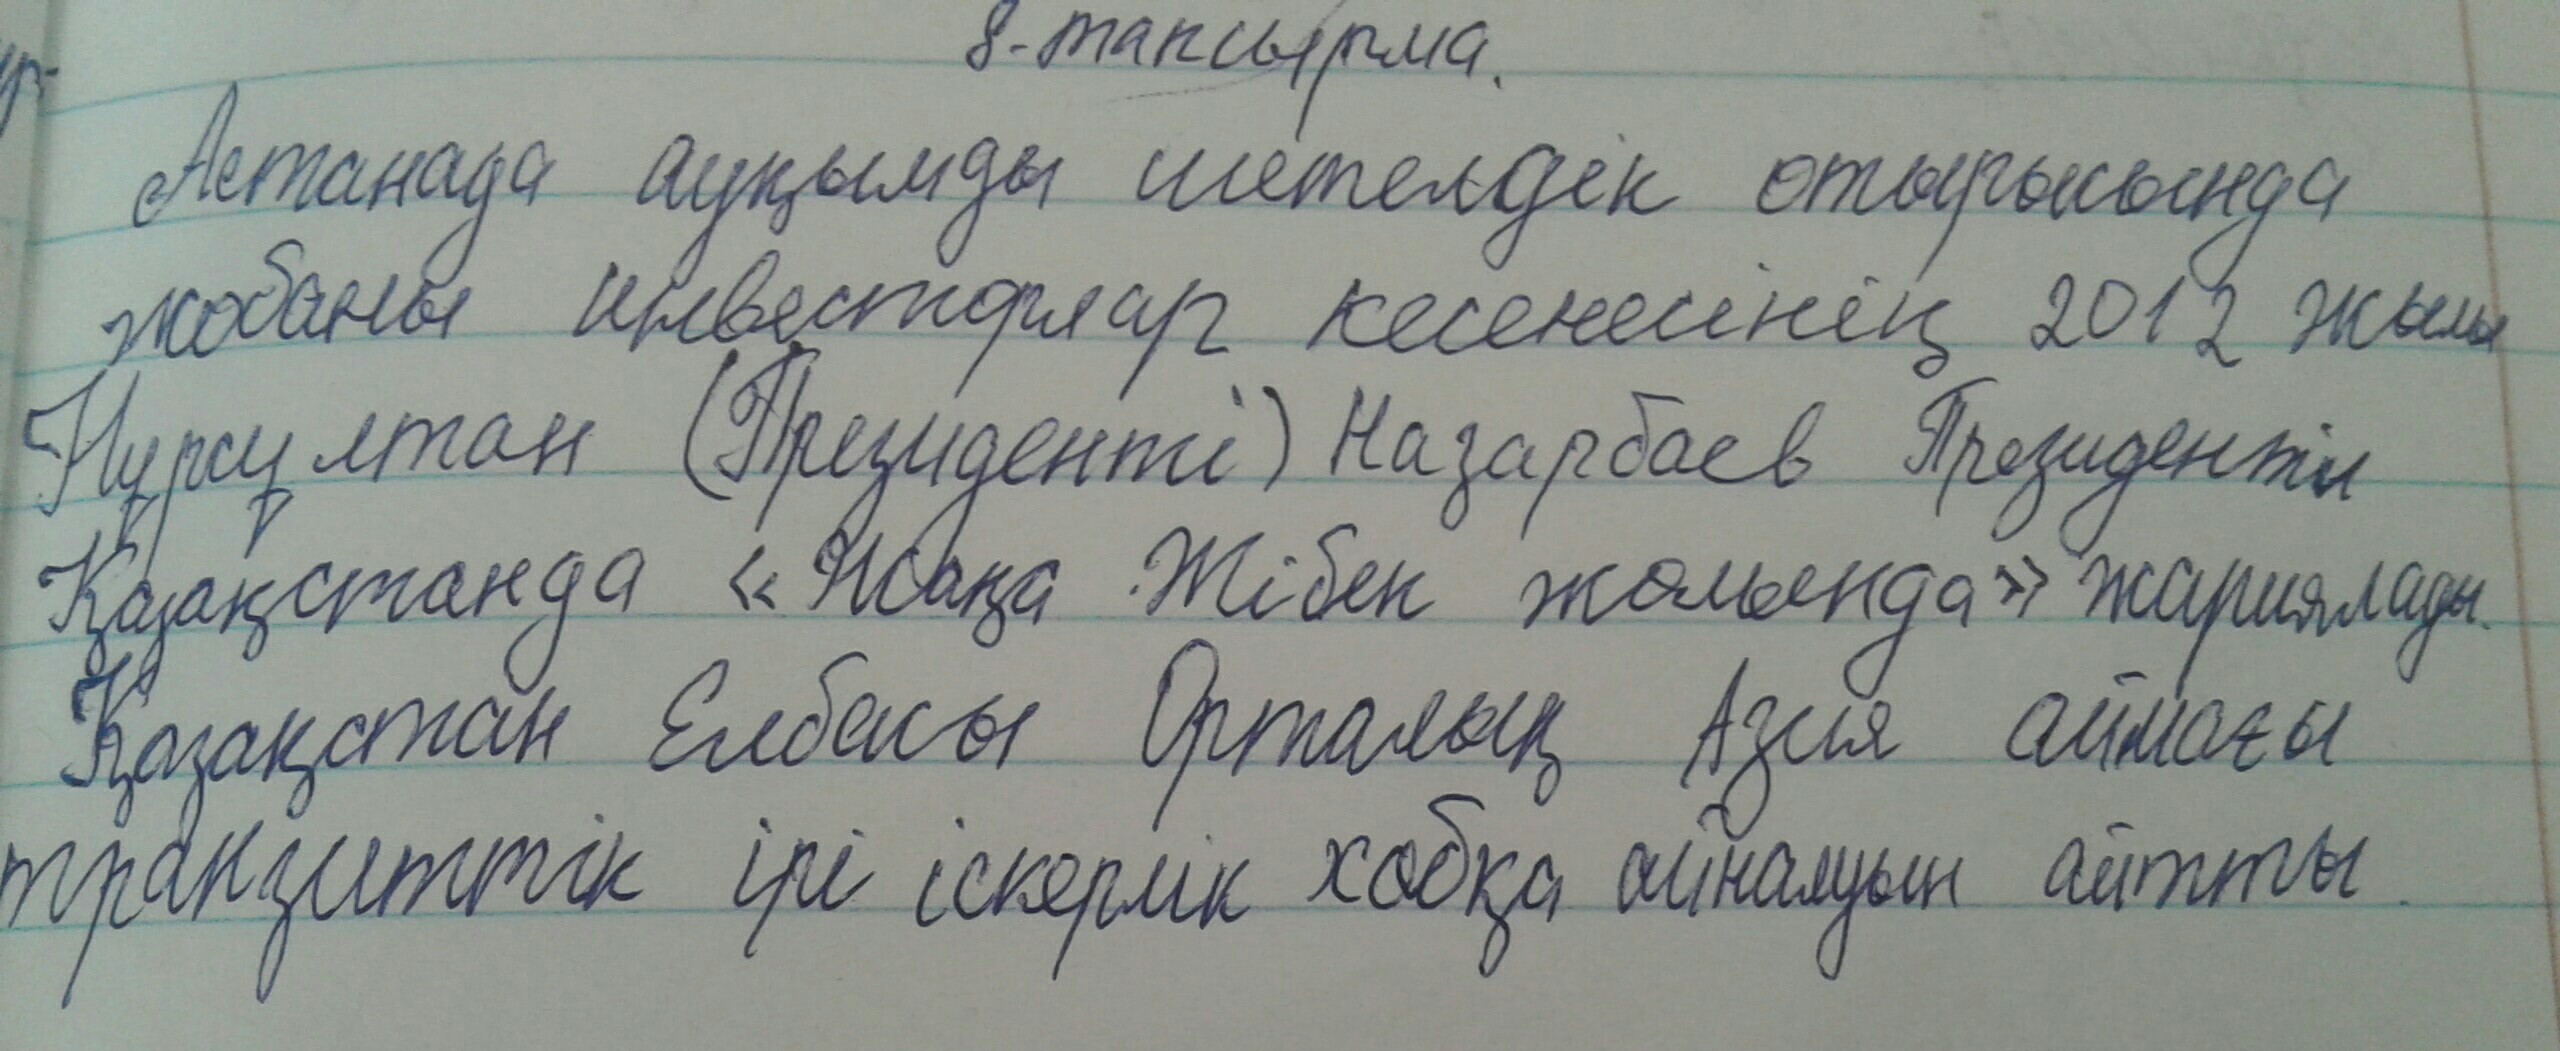 8-тапсырма.
Астанада ауқымды шетелдік отырысында
жобаны инвесторлар кесенесінің 2012 жылы
Нұрсұлтан (Президенті) Назарбаев Президенті
Қазақстанда «Жаңа Жібек жолында» жариялады.
Қазақстан Елбасы Орталық Азия аймағы
транзиттік ірі іскерлік хабқа айналуын айтты.